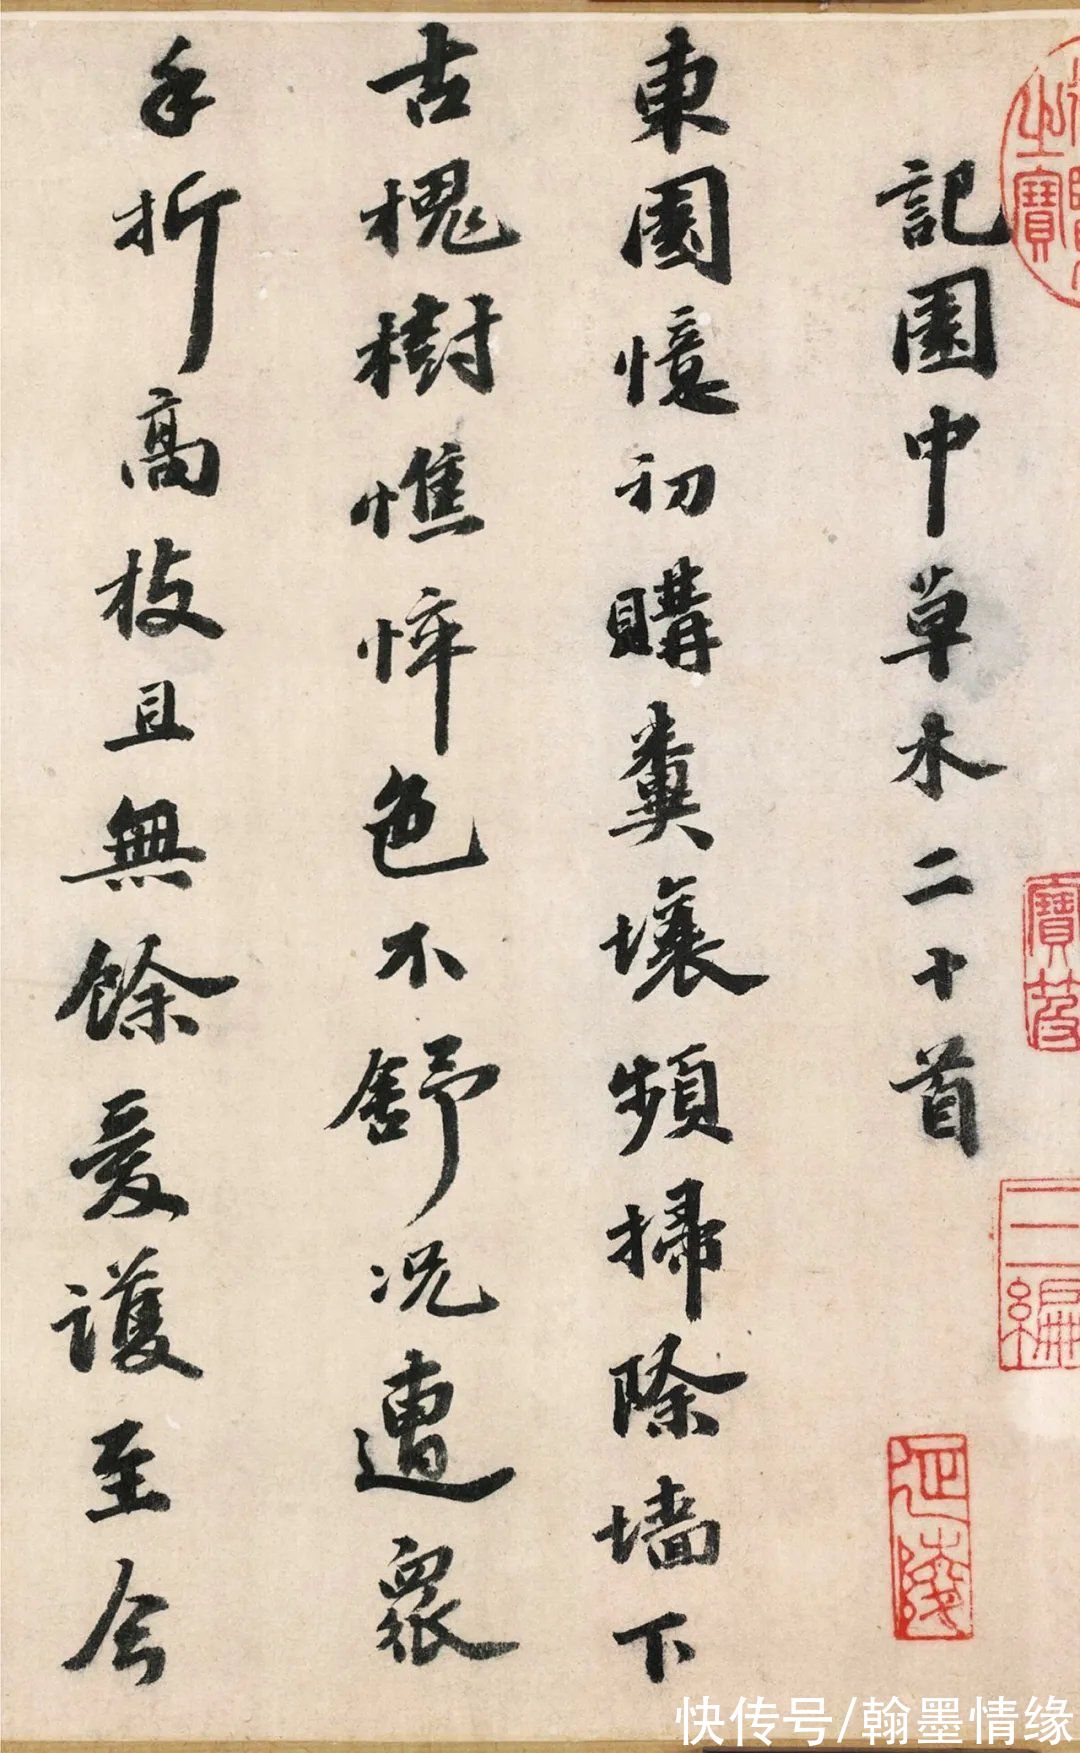 記園中草木二十首
東園憶初購糞壤頻掃除墻下
古槐樹憔悴色不舒況遭衆
手折高枝且無餘愛護至今
之寶
寶笈
三編
延陵
快传号/翰墨情缘